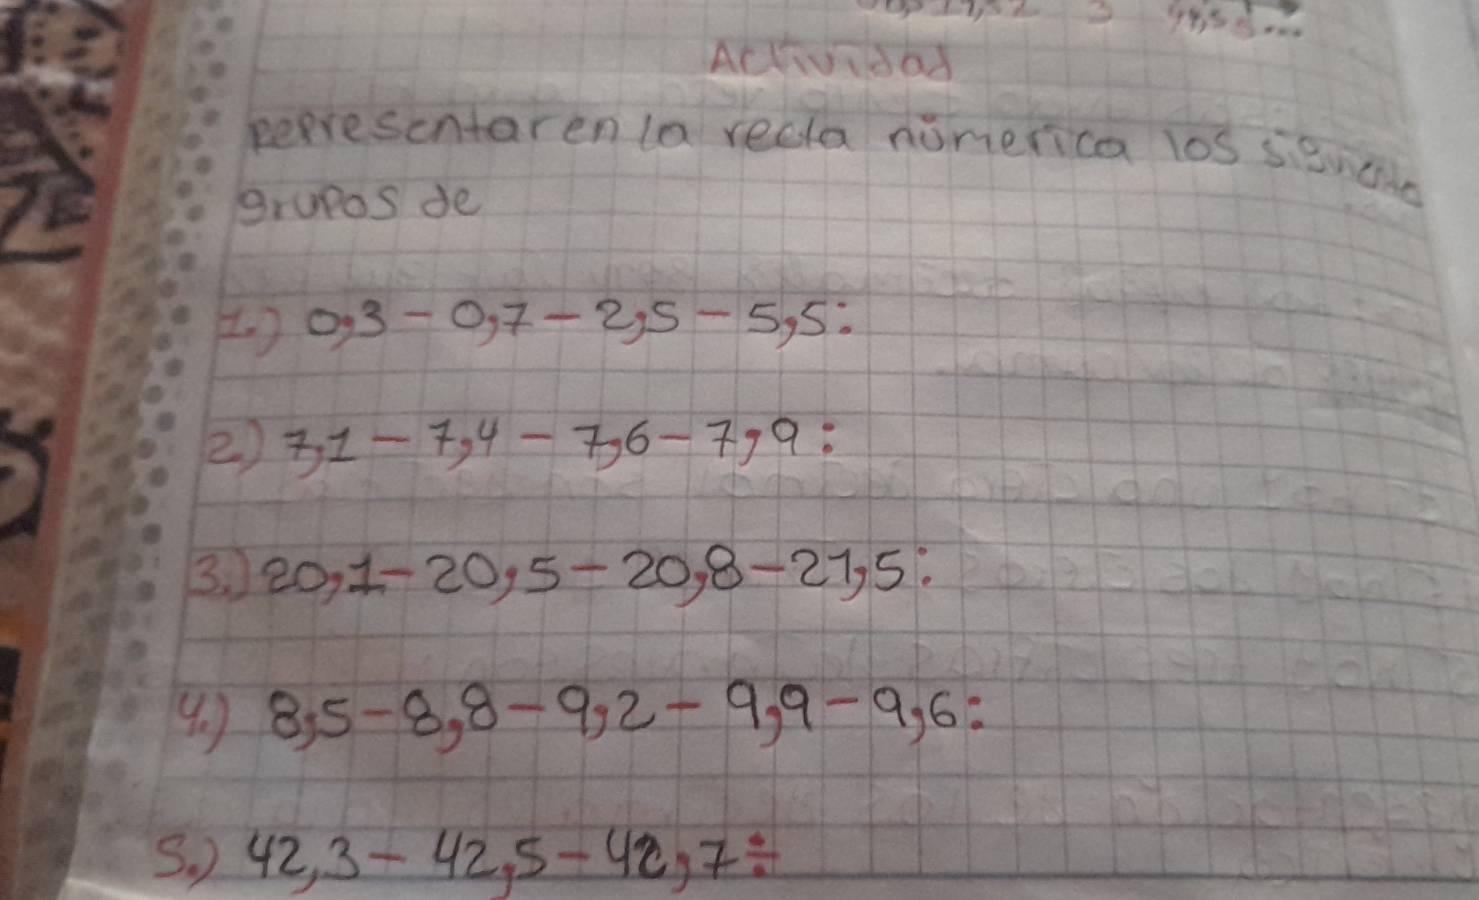 Actividad
Representar en la recta númerica los
grupos de
1.) 0,3 - 0,7 - 2,5 - 5,5:
2.) 7,1 - 7,4 - 7,6 - 7,9:
3.) 20,1 - 20,5 - 20,8 - 21,5:
4.) 8,5 - 8,8 - 9,2 - 9,9 - 9,6:
5.) 42,3 - 42,5 - 42,7÷